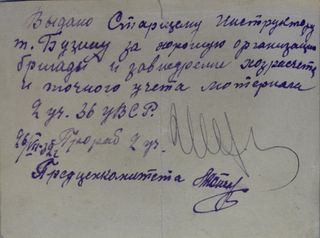 Выдано Старшему Инструктору
т. Бузину за хорошую организацию
бригады и за внедрение хозрасчета
и точного учета материала
2 уч. 36 УВСР.
Прораб 2 уч.
Предцехкомитета